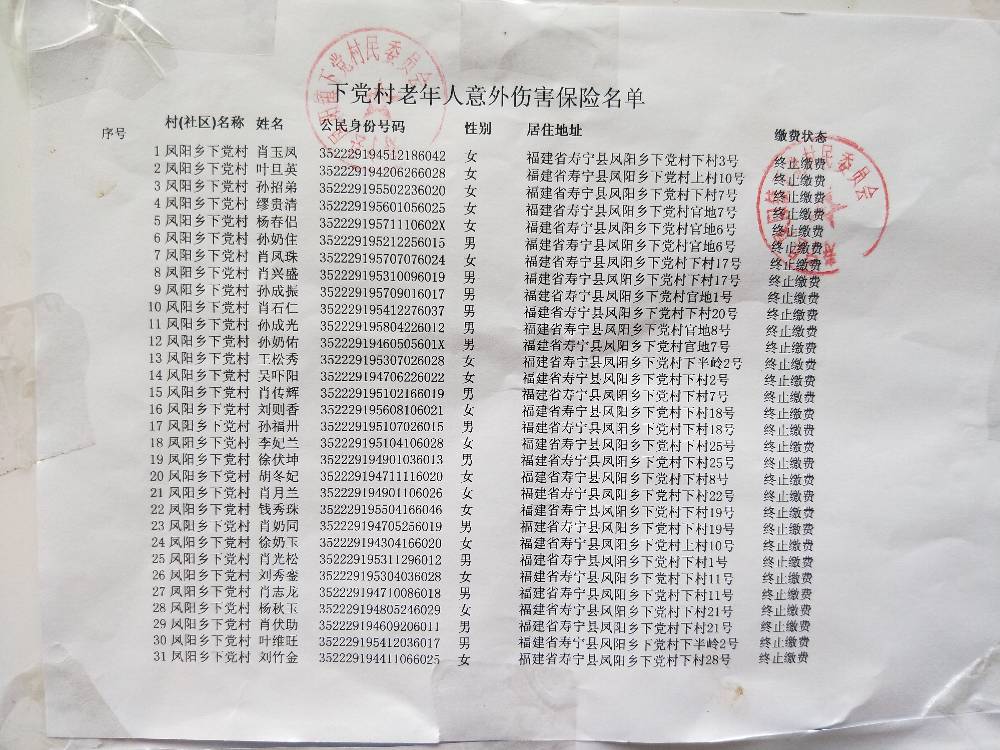 下党村民委员会
下党村老年人意外伤害保险名单
序号 村(社区)名称 姓名 公民身份号码 性别 居住地址 缴费状态
村民委员会
1 凤阳乡下党村 肖玉凤 352229194512186042 女 福建省寿宁县凤阳乡下党村下村3号 终止缴费
2 凤阳乡下党村 叶旦英 352229194206266028 女 福建省寿宁县凤阳乡下党村上村10号 终止缴费
3 凤阳乡下党村 孙招弟 352229195502236020 女 福建省寿宁县凤阳乡下党村下村7号 终止缴费
4 凤阳乡下党村 缪贵清 352229195601056025 女 福建省寿宁县凤阳乡下党村官地7号 终止缴费
5 凤阳乡下党村 杨春侣 35222919571110602X 女 福建省寿宁县凤阳乡下党村官地6号 终止缴费
6 凤阳乡下党村 孙奶住 352229195212256015 男 福建省寿宁县凤阳乡下党村官地6号 终止缴费
7 凤阳乡下党村 肖凤珠 352229195707076024 女 福建省寿宁县凤阳乡下党村下村17号 终止缴费
8 凤阳乡下党村 肖兴盛 352229195310096019 男 福建省寿宁县凤阳乡下党村下村17号 终止缴费
9 凤阳乡下党村 孙成振 352229195709016017 男 福建省寿宁县凤阳乡下党村官地1号 终止缴费
10 凤阳乡下党村 肖石仁 352229195412276037 男 福建省寿宁县凤阳乡下党村下村20号 终止缴费
11 凤阳乡下党村 孙成光 352229195804226012 男 福建省寿宁县凤阳乡下党村官地8号 终止缴费
12 凤阳乡下党村 孙奶佑 35222919460505601X 男 福建省寿宁县凤阳乡下党村官地7号 终止缴费
13 凤阳乡下党村 王松秀 352229195307026028 女 福建省寿宁县凤阳乡下党村下半岭2号 终止缴费
14 凤阳乡下党村 吴吓阳 352229194706226022 女 福建省寿宁县凤阳乡下党村下村2号 终止缴费
15 凤阳乡下党村 肖传辉 352229195102166019 男 福建省寿宁县凤阳乡下党村下村7号 终止缴费
16 凤阳乡下党村 刘则香 352229195608106021 女 福建省寿宁县凤阳乡下党村下村18号 终止缴费
17 凤阳乡下党村 孙福卅 352229195107026015 男 福建省寿宁县凤阳乡下党村下村18号 终止缴费
18 凤阳乡下党村 李妃兰 352229195104106028 女 福建省寿宁县凤阳乡下党村下村25号 终止缴费
19 凤阳乡下党村 徐伏坤 352229194901036013 男 福建省寿宁县凤阳乡下党村下村25号 终止缴费
20 凤阳乡下党村 胡冬妃 352229194711116020 女 福建省寿宁县凤阳乡下党村下村8号 终止缴费
21 凤阳乡下党村 肖月兰 352229194901106026 女 福建省寿宁县凤阳乡下党村下村22号 终止缴费
22 凤阳乡下党村 钱秀珠 352229195504166046 女 福建省寿宁县凤阳乡下党村下村19号 终止缴费
23 凤阳乡下党村 肖奶同 352229194705256019 男 福建省寿宁县凤阳乡下党村下村19号 终止缴费
24 凤阳乡下党村 徐奶玉 352229194304166020 女 福建省寿宁县凤阳乡下党村上村10号 终止缴费
25 凤阳乡下党村 肖光松 352229195311296012 男 福建省寿宁县凤阳乡下党村下村1号 终止缴费
26 凤阳乡下党村 刘秀銮 352229195304036028 女 福建省寿宁县凤阳乡下党村下村11号 终止缴费
27 凤阳乡下党村 肖志龙 352229194710086018 男 福建省寿宁县凤阳乡下党村下村11号 终止缴费
28 凤阳乡下党村 杨秋玉 352229194805246029 女 福建省寿宁县凤阳乡下党村下村21号 终止缴费
29 凤阳乡下党村 肖伏助 352229194609206011 男 福建省寿宁县凤阳乡下党村下村21号 终止缴费
30 凤阳乡下党村 叶维旺 352229195412036017 男 福建省寿宁县凤阳乡下党村下半岭2号 终止缴费
31 凤阳乡下党村 刘竹金 352229194411066025 女 福建省寿宁县凤阳乡下党村下村28号 终止缴费